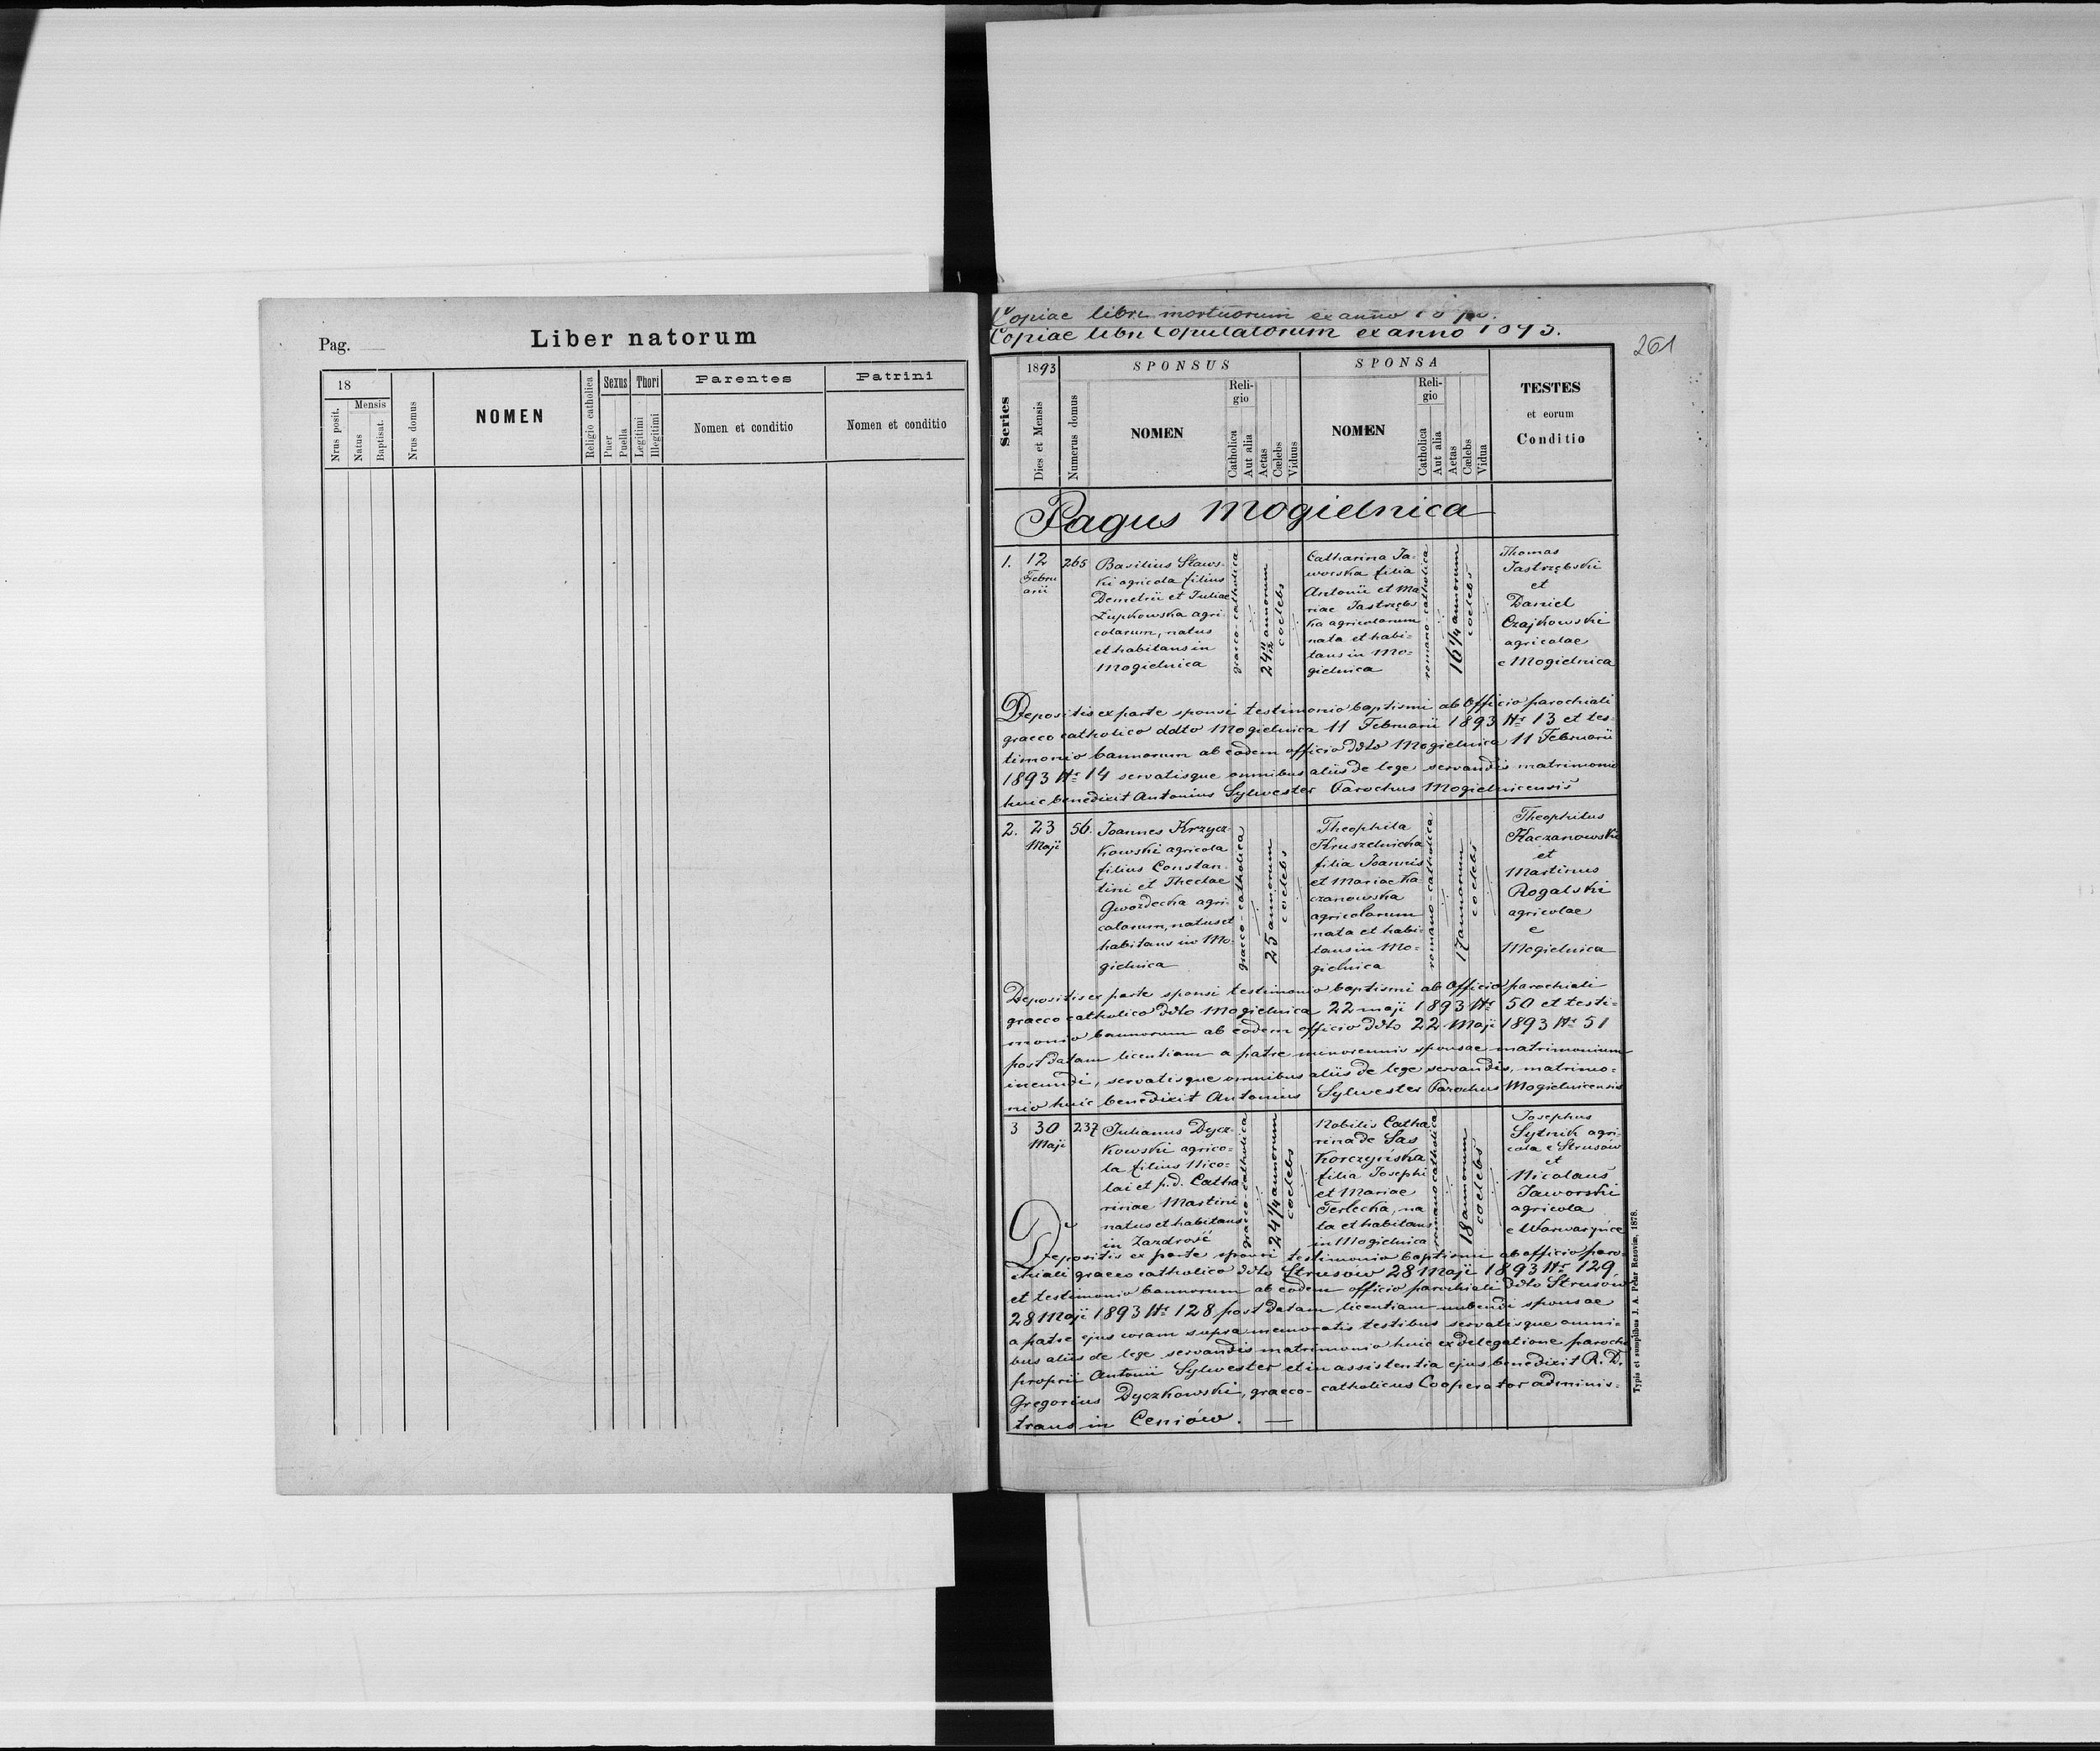 Pag.
Liber natorum
18
Nrus posit.
Mensis
Natus
Baptisat.
Nrus domus
NOMEN
Religio catholica
Sexus
Puer
Puella
Thori
Legitimi
Illegitimi
Parentes
Nomen et conditio
Patrini
Nomen et conditio
Copiae libri mortuorum ex anno
Copiae libri Copulatorum ex anno 1893.
261
Series
1893
Dies et Mensis
Numerus domus
SPONSUS
NOMEN
Religio
Catholica
Aut alia
Aetas
Cælebs
Viduus
SPONSA
NOMEN
Religio
Catholica
Aut alia
Aetas
Cælebs
Vidua
TESTES
et eorum
Conditio
Pagus Mogielnica
1.
12
Febru
arii
265
Basilius Staws-
ki agricola filius
Demetrii et Juliae
Zupkowska agri-
colarum, natus
et habitans in
Mogielnica
graeco-catholica
24 11/12 annorum
coelebs
Catharina Ja-
worska filia
Antonii et Ma
riae Jastrzębs
ka agricolarum
nata et habi-
tans in Mo-
gielnica
romano-catholica
16 1/4 annorum
coelebs
Thomas
Jastrzębski
et
Daniel
Czajkowski
agricolae
e Mogielnica
Depositis ex parte sponsi testimonio baptismi ab Officio parochiali
graeco catholico ddto Mogielnica 11 Februarii 1893 Nr 13 et tes-
timonio bannorum ab eodem officio ddto Mogielnica 11 Februarii
1893 Nr 14 servatisque omnibus aliis de lege servandis matrimonio
huic benedixit Antonius Sylwester Parochus Mogielnicensis
2.
23
Maji
56.
Joannes Krzycz-
kowski agricola
filius Constan-
tini et Theclae
Gwozdecka agri-
colarum, natus et
habitans in Mo-
gielnica
graeco-catholica
25 annorum
coelebs
Theophila
Kruszelnicka
filia Joannis
et Mariae Ka
czanowska
agricolarum
nata et habi-
tans in Mo-
gielnica
romano-catholica
17 annorum
coelebs
Theophilus
Kaczanowski
et
Martinus
Rogalski
agricolae
e
Mogielnica
Depositis ex parte sponsi testimonio baptismi ab Officio parochiali
graeco catholico ddto Mogielnica 22 maji 1893 Nr 50 et testi-
monio bannorum ab eodem officio ddto 22 Maji 1893 Nr 51
post datam licentiam a patre minorennis sponsae matrimonium
ineundi, servatisque omnibus aliis de lege servandis, matrimo-
nio huic benedixit Antonius Sylwester Parochus Mogielnicensis
3
30
Maji
237
Julianus Dycz-
kowski agrico-
la filius Nico-
lai et p.d. Catha
rinae Martini
natus et habitans
in Zazdrość
graeco-catholica
24 1/4 annorum
coelebs
Nobilis Catha
rina de Sas
Korczyńska
filia Josephi
et Mariae
Terlecka, na
ta et habitans
in Mogielnica
romano catholica
18 annorum
coelebs
Josephus
Sytnik agri-
cola e Strusów
et
Nicolaus
Jaworski
agricola
e Warwaryńce
De
Depositis ex parte sponsi testimonio baptismi ab officio paro-
chiali graeco catholico ddto Strusów 28 Maji 1893 Nr 129
et testimonio bannorum ab eodem officio parochiali ddto Strusów
28 Maji 1893 Nr 128 post datam licentiam nubendi sponsae
a patre ejus coram supra memoratis testibus servatisque omni-
bus aliis de lege servandis matrimonio huic ex delegatione parochi
proprii Antonii Sylwester et in assistentia ejus benedixit R. D.
Gregorius Dyczkowski, graeco-catholicus Cooperator adminis-
trans in Ceniów. —
Typis et sumptibus J. A. Pelar Resoviæ, 1878.